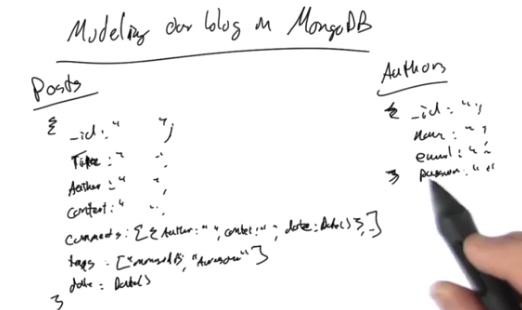 Modeling our blog in MongoDB
Posts
{ _id: " ",
Title: " ",
Author: " ",
content: " ",
comments: [{Author: " ", content: " ", date: Date()}, _]
tags = ["mongoDB", "Awesome"]
date: Date()
}
Authors
{ _id: " ",
name: " ",
email: " ",
} password: " "